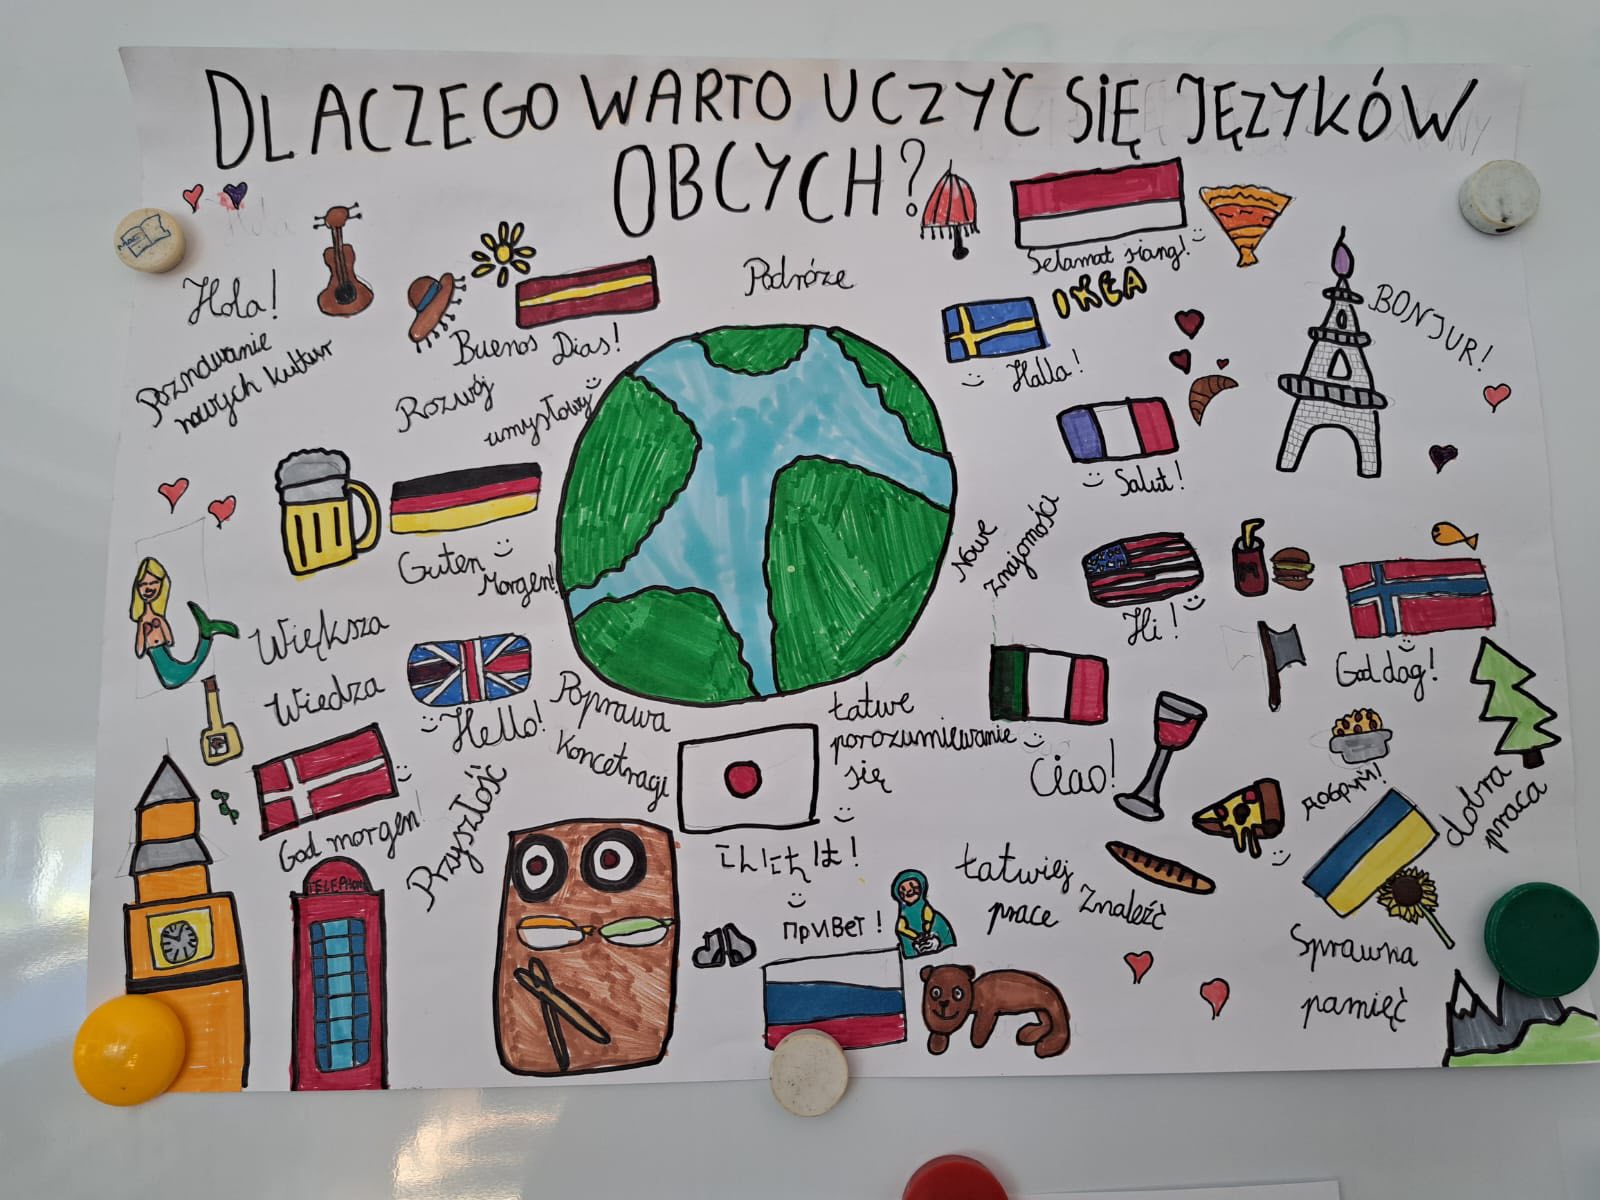 DLACZEGO WARTO UCZYĆ SIĘ JĘZYKÓW
OBCYCH?
Hola!
Poznawanie
nowych kultur
Buenos Dias!
Rozwój
umysłowy
Podróże
Selamat siang!
IKEA
Hallo!
BONJUR!
Salut!
Guten
Morgen!
Nowe
znajomości
Hi!
M
God dag!
Większa
Wiedza
Hello!
Poprawa
Koncetragi
Łatwe
porozumiewanie
się
Ciao!
God morgen!
Przyszłość
こんにちは!
привет!
Łatwiej
Znaleźć
prace
добрий!
dobra
praca
Sprawna
pamięć
TELEPHON